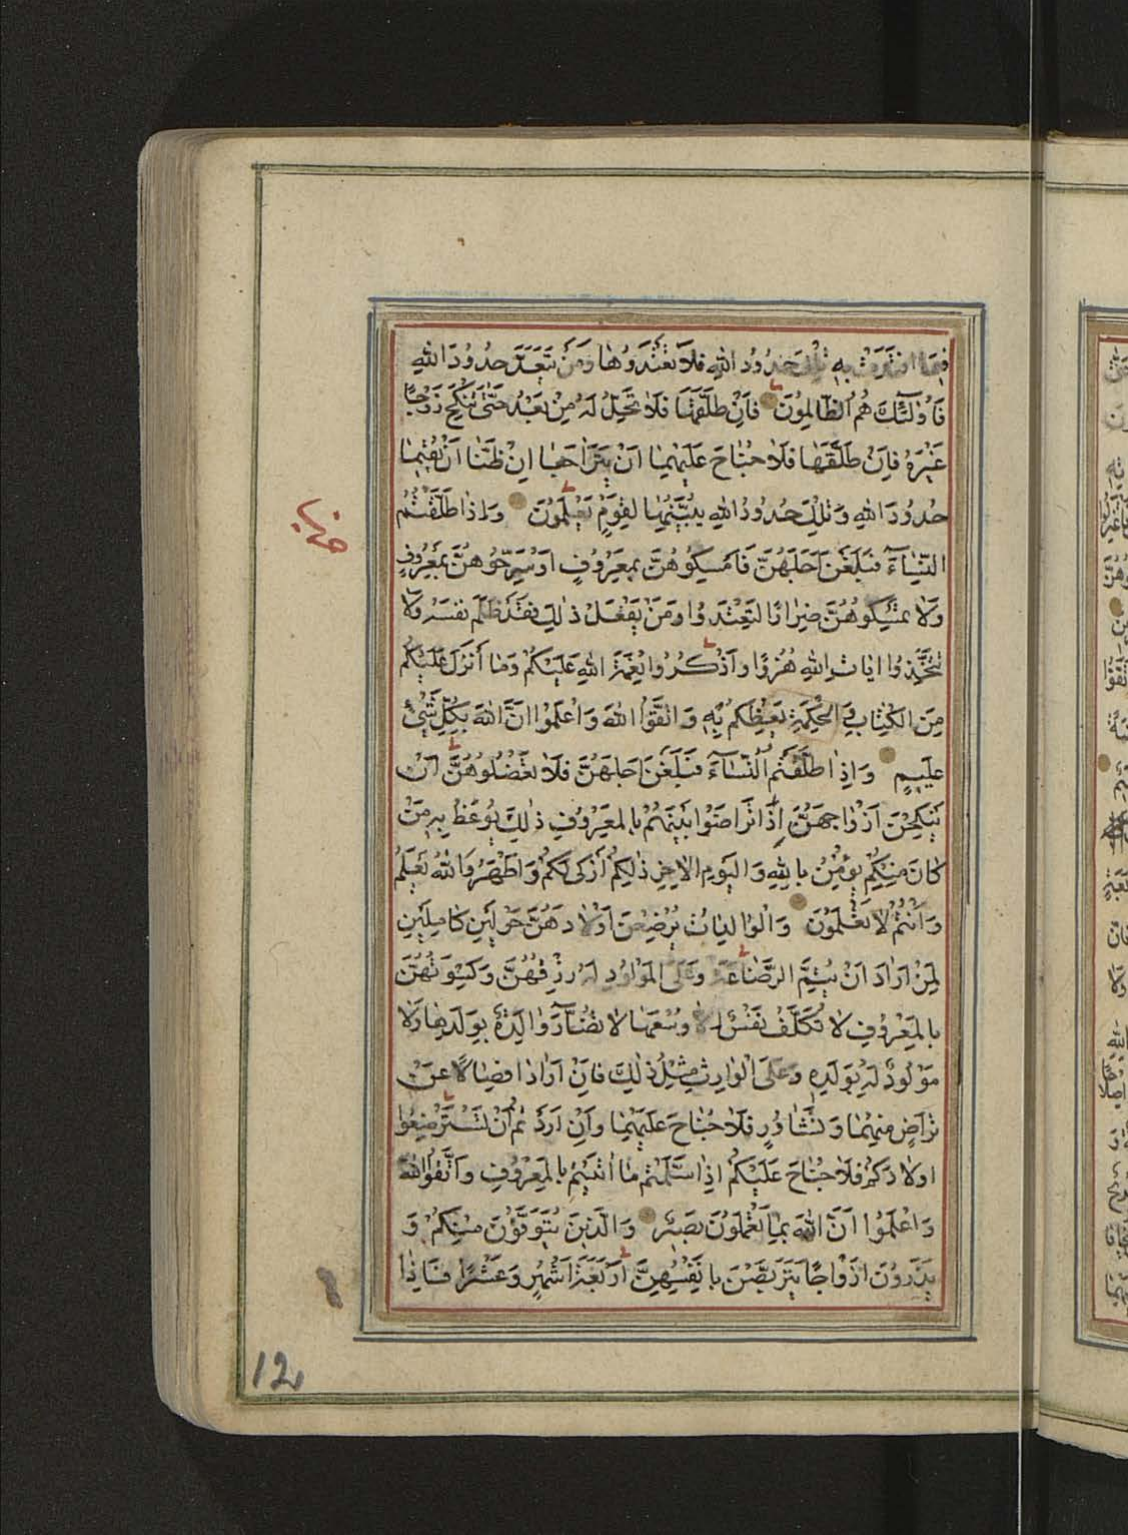 فِيمَا افْتَدَتْ بِهِ تِلْكَ حُدُودُ اللهِ فَلَا تَعْتَدُوهَا وَمَنْ يَتَعَدَّ حُدُودَ اللهِ
فَأُولٰئِكَ هُمُ الظَّالِمُونَ فَاِنْ طَلَّقَهَا فَلَا تَحِلُّ لَهُ مِنْ بَعْدُ حَتّٰى تَنْكِحَ زَوْجًا
غَيْرَهُ فَاِنْ طَلَّقَهَا فَلَا جُنَاحَ عَلَيْهِمَا اَنْ يَتَرَاجَعَا اِنْ ظَنَّا اَنْ يُقِيمَا
حُدُودَ اللهِ وَتِلْكَ حُدُودُ اللهِ يُبَيِّنُهَا لِقَوْمٍ يَعْلَمُونَ وَاِذَا طَلَّقْتُمُ
النِّسَآءَ فَبَلَغْنَ اَجَلَهُنَّ فَاَمْسِكُوهُنَّ بِمَعْرُوفٍ اَوْ سَرِّحُوهُنَّ بِمَعْرُوفٍ
وَلَا تُمْسِكُوهُنَّ ضِرَارًا لِتَعْتَدُوا وَمَنْ يَفْعَلْ ذٰلِكَ فَقَدْ ظَلَمَ نَفْسَهُ وَلَا
تَتَّخِذُوا اٰيَاتِ اللهِ هُزُوًا وَاذْكُرُوا نِعْمَةَ اللهِ عَلَيْكُمْ وَمَا اَنْزَلَ عَلَيْكُمْ
مِنَ الْكِتَابِ وَالْحِكْمَةِ يَعِظُكُمْ بِهِ وَاتَّقُوا اللهَ وَاعْلَمُوا اَنَّ اللهَ بِكُلِّ شَيْءٍ
عَلِيمٌ وَاِذَا طَلَّقْتُمُ النِّسَآءَ فَبَلَغْنَ اَجَلَهُنَّ فَلَا تَعْضُلُوهُنَّ اَنْ
يَنْكِحْنَ اَزْوَاجَهُنَّ اِذَا تَرَاضَوْا بَيْنَهُمْ بِالْمَعْرُوفِ ذٰلِكَ يُوعَظُ بِهِ مَنْ
كَانَ مِنْكُمْ يُؤْمِنُ بِاللهِ وَالْيَوْمِ الْاٰخِرِ ذٰلِكُمْ اَزْكٰى لَكُمْ وَاَطْهَرُ وَاللهُ يَعْلَمُ
وَاَنْتُمْ لَا تَعْلَمُونَ وَالْوَالِدَاتُ يُرْضِعْنَ اَوْلَادَهُنَّ حَوْلَيْنِ كَامِلَيْنِ
لِمَنْ اَرَادَ اَنْ يُتِمَّ الرَّضَاعَةَ وَعَلَى الْمَوْلُودِ لَهُ رِزْقُهُنَّ وَكِسْوَتُهُنَّ
بِالْمَعْرُوفِ لَا تُكَلَّفُ نَفْسٌ اِلَّا وُسْعَهَا لَا تُضَآرَّ وَالِدَةٌ بِوَلَدِهَا وَلَا
مَوْلُودٌ لَهُ بِوَلَدِهِ وَعَلَى الْوَارِثِ مِثْلُ ذٰلِكَ فَاِنْ اَرَادَا فِصَالًا عَنْ
تَرَاضٍ مِنْهُمَا وَتَشَاوُرٍ فَلَا جُنَاحَ عَلَيْهِمَا وَاِنْ اَرَدْتُمْ اَنْ تَسْتَرْضِعُوا
اَوْلَادَكُمْ فَلَا جُنَاحَ عَلَيْكُمْ اِذَا سَلَّمْتُمْ مَا اٰتَيْتُمْ بِالْمَعْرُوفِ وَاتَّقُوا اللهَ
وَاعْلَمُوا اَنَّ اللهَ بِمَا تَعْمَلُونَ بَصِيرٌ وَالَّذِينَ يُتَوَفَّوْنَ مِنْكُمْ وَ
يَذَرُونَ اَزْوَاجًا يَتَرَبَّصْنَ بِاَنْفُسِهِنَّ اَرْبَعَةَ اَشْهُرٍ وَعَشْرًا فَاِذَا
12